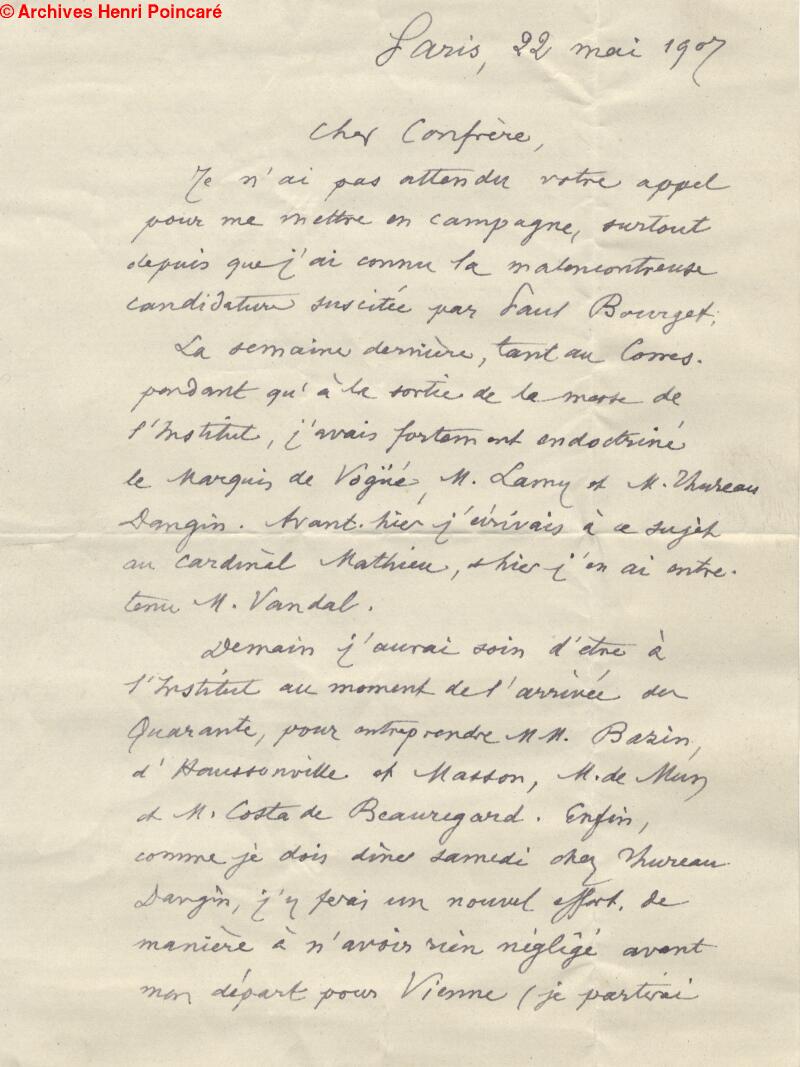 © Archives Henri Poincaré
Paris, 22 mai 1907
Cher Confrère,
Je n'ai pas attendu votre appel
pour me mettre en campagne, surtout
depuis que j'ai connu la malencontreuse
candidature suscitée par Paul Bourget.
La semaine dernière, tant au Corres-
pondant qu'à la sortie de la messe de
l'Institut, j'avais fortement endoctriné
le Marquis de Vogüé, M. Lamy et M. Thureau
Dangin. Avant-hier j'écrivais à ce sujet
au cardinal Mathieu, & hier j'en ai entre-
tenu M. Vandal.
Demain j'aurai soin d'être à
l'Institut au moment de l'arrivée des
Quarante, pour entreprendre MM. Bazin,
d'Haussonville et Masson, M. de Mun
et M. Costa de Beauregard. Enfin,
comme je dois dîner samedi chez Thureau
Dangin, j'y ferai un nouvel effort, de
manière à n'avoir rien négligé avant
mon départ pour Vienne (je partirai